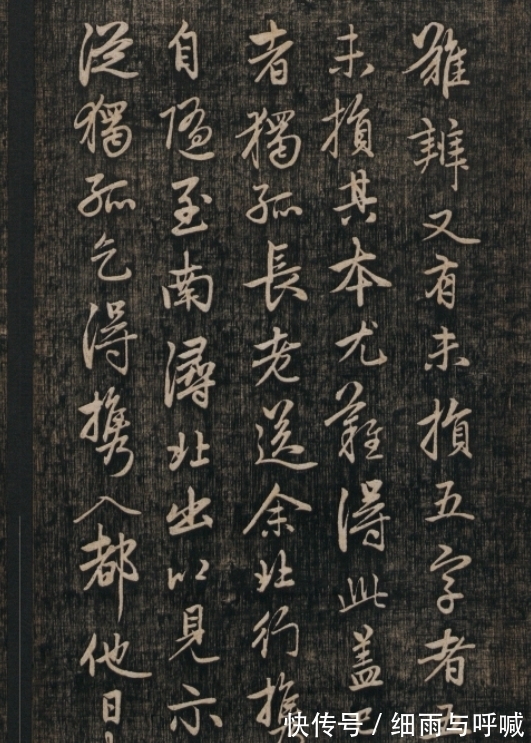 難辨又有未損五字者五
未損其本尤難得此盖
者獨孤長老送余北行携
自随至南潯北出以見示
從獨孤乞得携入都他日
快传号 / 细雨与呼喊